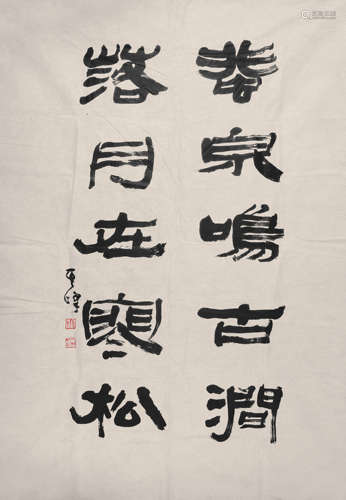 荒泉鳴古澗
落月在寒松